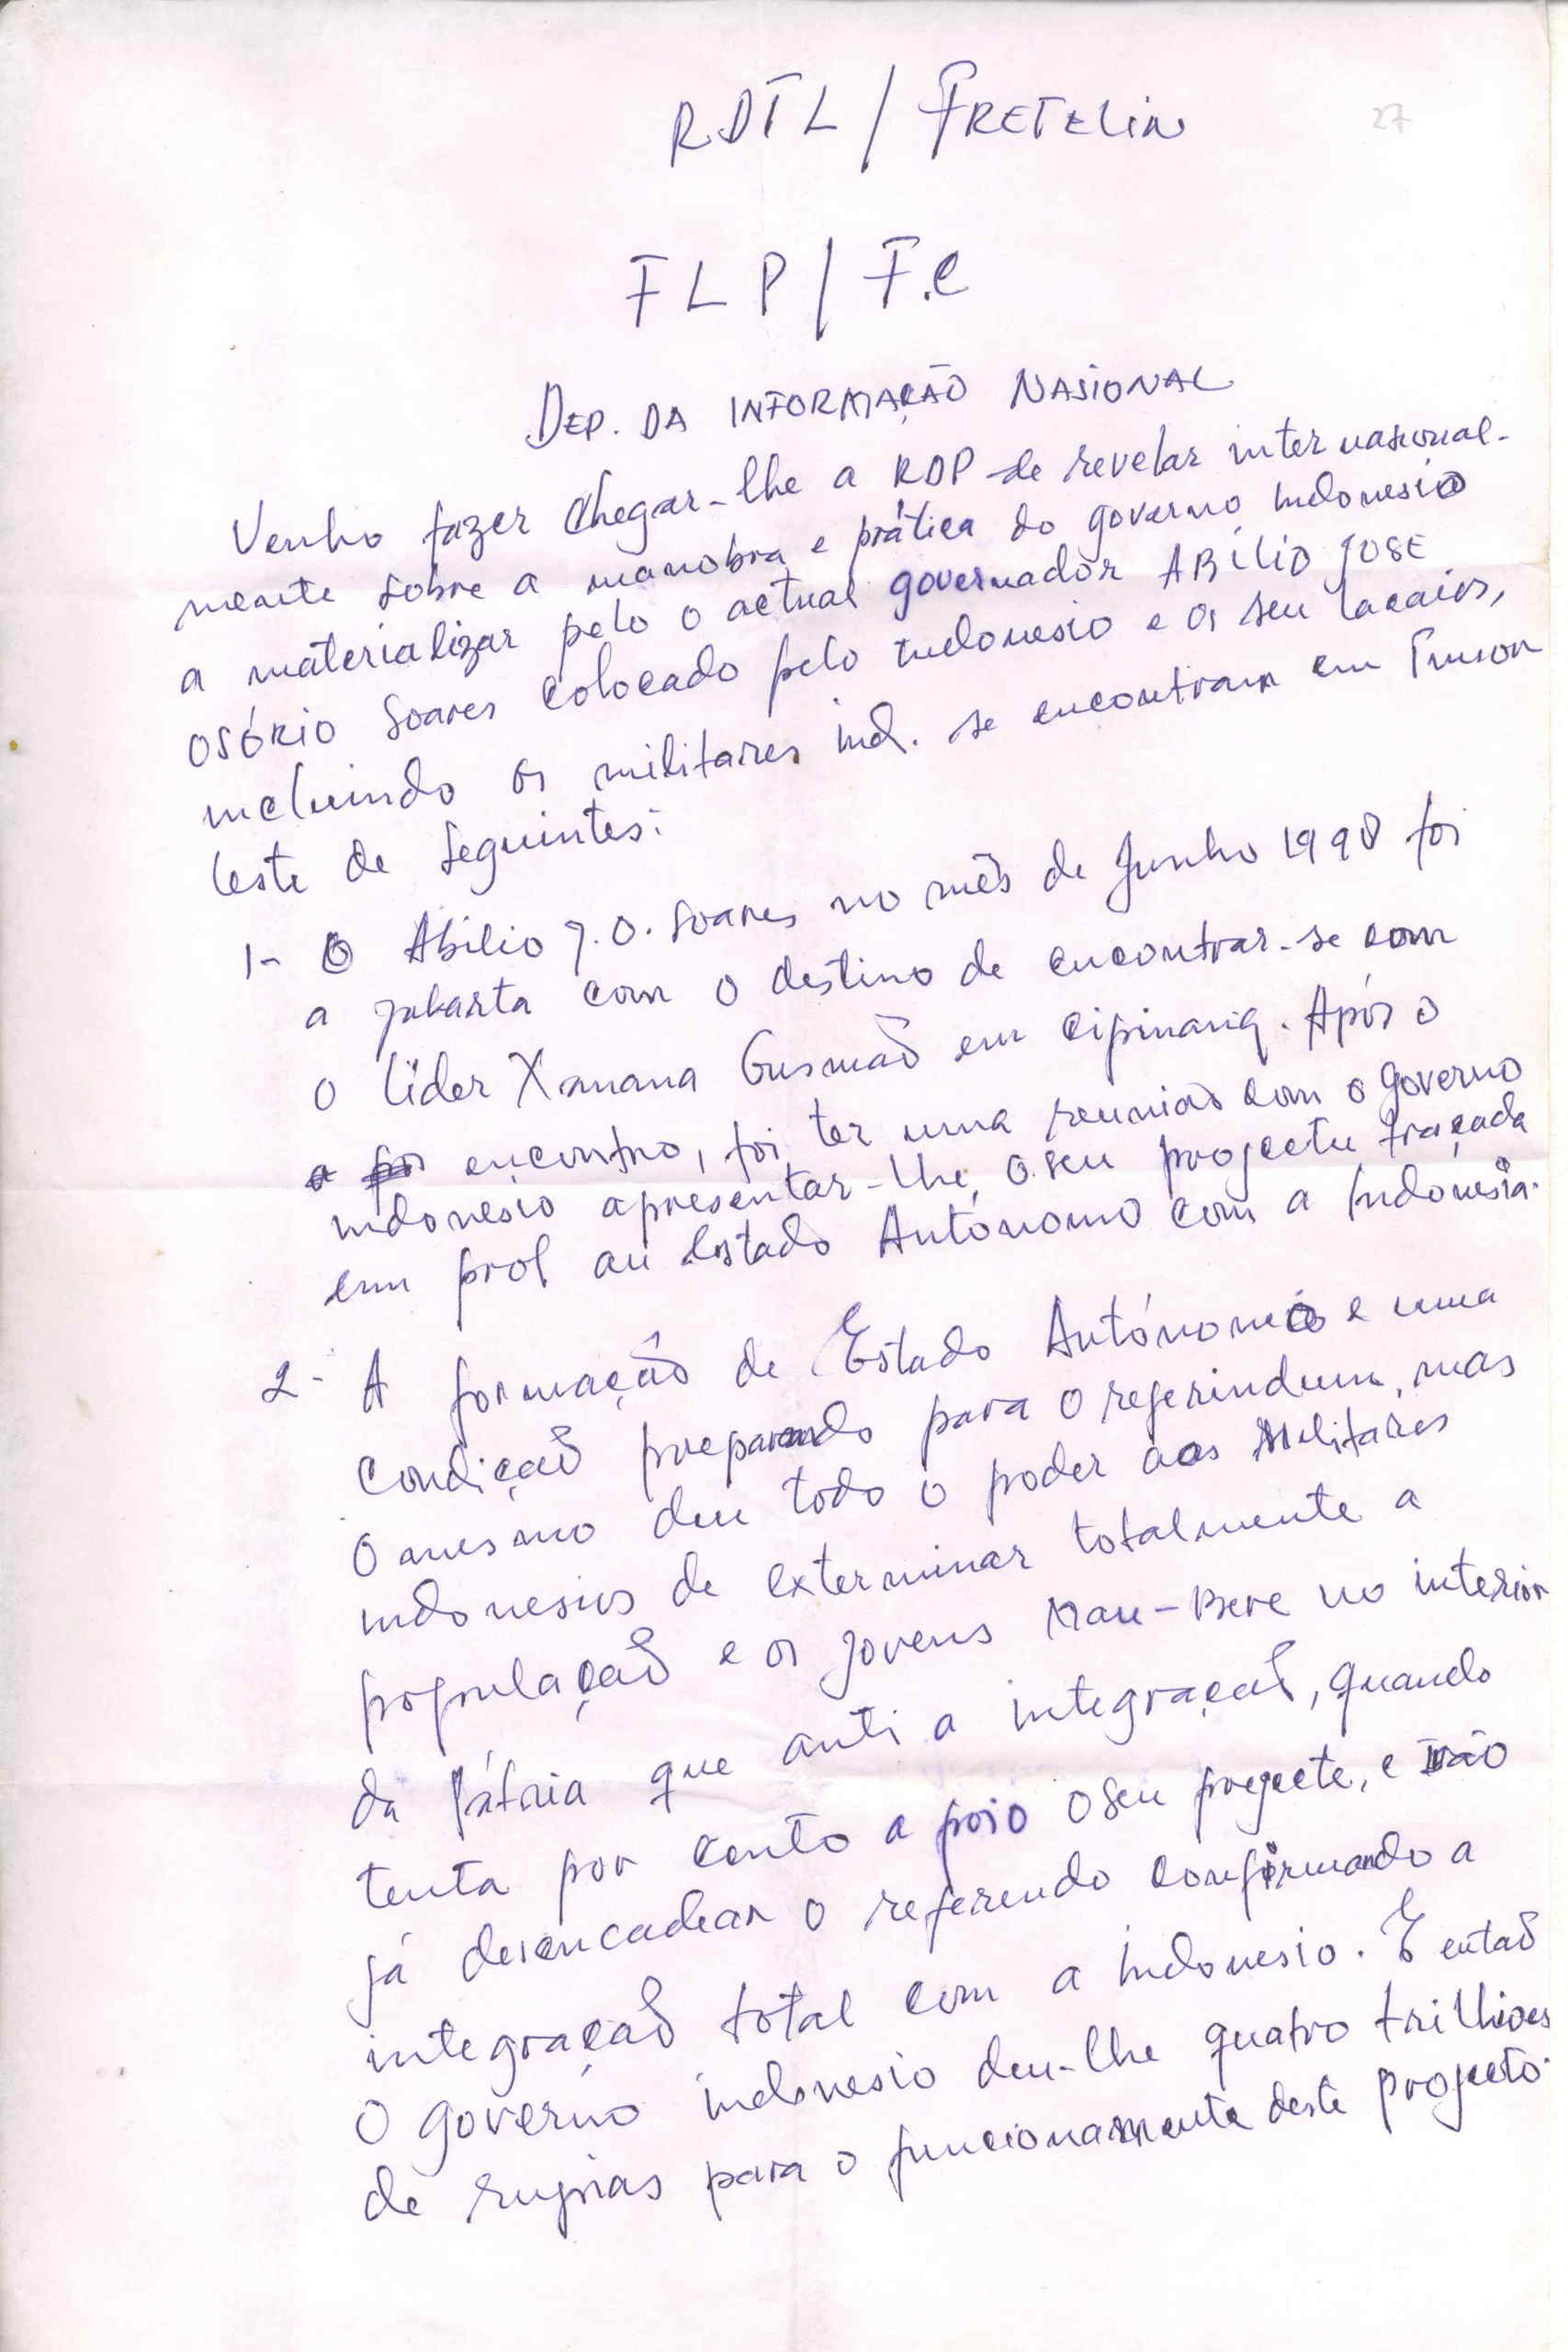 RDTL / FRETELIN
27
FLP / F.C
DEP. DA INFORMAÇÃO NASIONAL
Venho fazer chegar-lhe a RDP de revelar internasional-
mente sobre a manobra e prática do governo indonesio
a materializar pelo o actual governador ABÍLIO JOSE
OSÓRIO Soares colocado pelo indonesio e os seu lacaios,
incluindo os militares ind. se encontram em Timor
leste de seguintes:
1- O Abílio J.O. Soares no mês de Junho 1998 foi
a Jakarta com o destino de encontrar-se com
o líder Xanana Gusmão em Cipinang. Após o
encontro, foi ter uma reunião com o governo
indonesio apresentar-lhe, o seu projectu traçada
em prol au Estado Autónomo com a Indonésia.
2- A formação de Estado Autónomo e uma
condição preparando para o referindum, mas
o mesmo deu todo o poder aos Militares
indonesios de exterminar totalmente a
população e os jovens Mau-Bere no interior
da Pátria que anti a integração, quando
tenta por cento apoio o seu projecte, e vão
já desencadear o referendo confirmando a
integração total com a Indonesio. E então
o governo indonesio deu-lhe quatro trilhioes
de rupias para o funcionamente deste projecto.